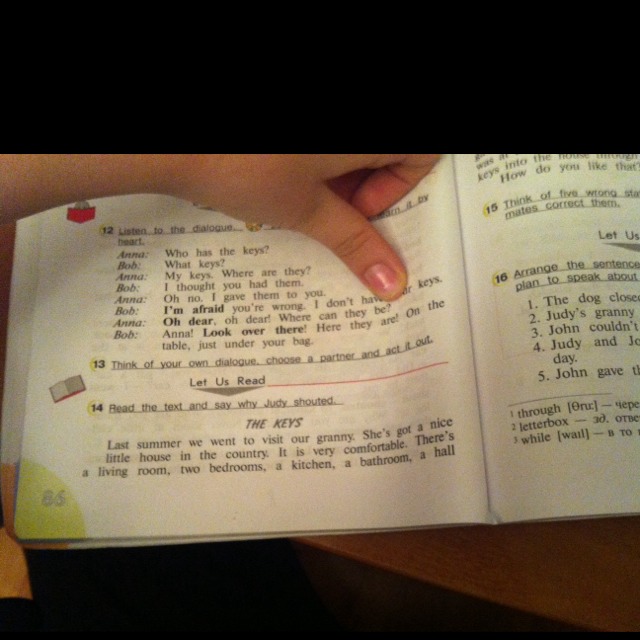 12 Listen to the dialogue. learn it by
heart.
Anna: Who has the keys?
Bob: What keys?
Anna: My keys. Where are they?
Bob: I thought you had them.
Anna: Oh no, I gave them to you.
Bob: I'm afraid you're wrong. I don't have keys.
Anna: Oh dear, oh dear! Where can they be?
Bob: Anna! Look over there! Here they are! On the
table, just under your bag.
13 Think of your own dialogue, choose a partner and act it out.
Let Us Read
14 Read the text and say why Judy shouted.
THE KEYS
Last summer we went to visit our granny. She's got a nice
little house in the country. It is very comfortable. There's
a living room, two bedrooms, a kitchen, a bathroom, a hall
86
was
keys into the house through
How do you like that
15 Think of five wrong
mates correct them.
Let Us
16 Arrange the
plan to speak about
1. The dog
2. Judy's granny
3. John couldn't
4. Judy and
day.
5. John gave
1 through [θru:] — чере
2 letterbox — зд.
3 while [wail] — в то